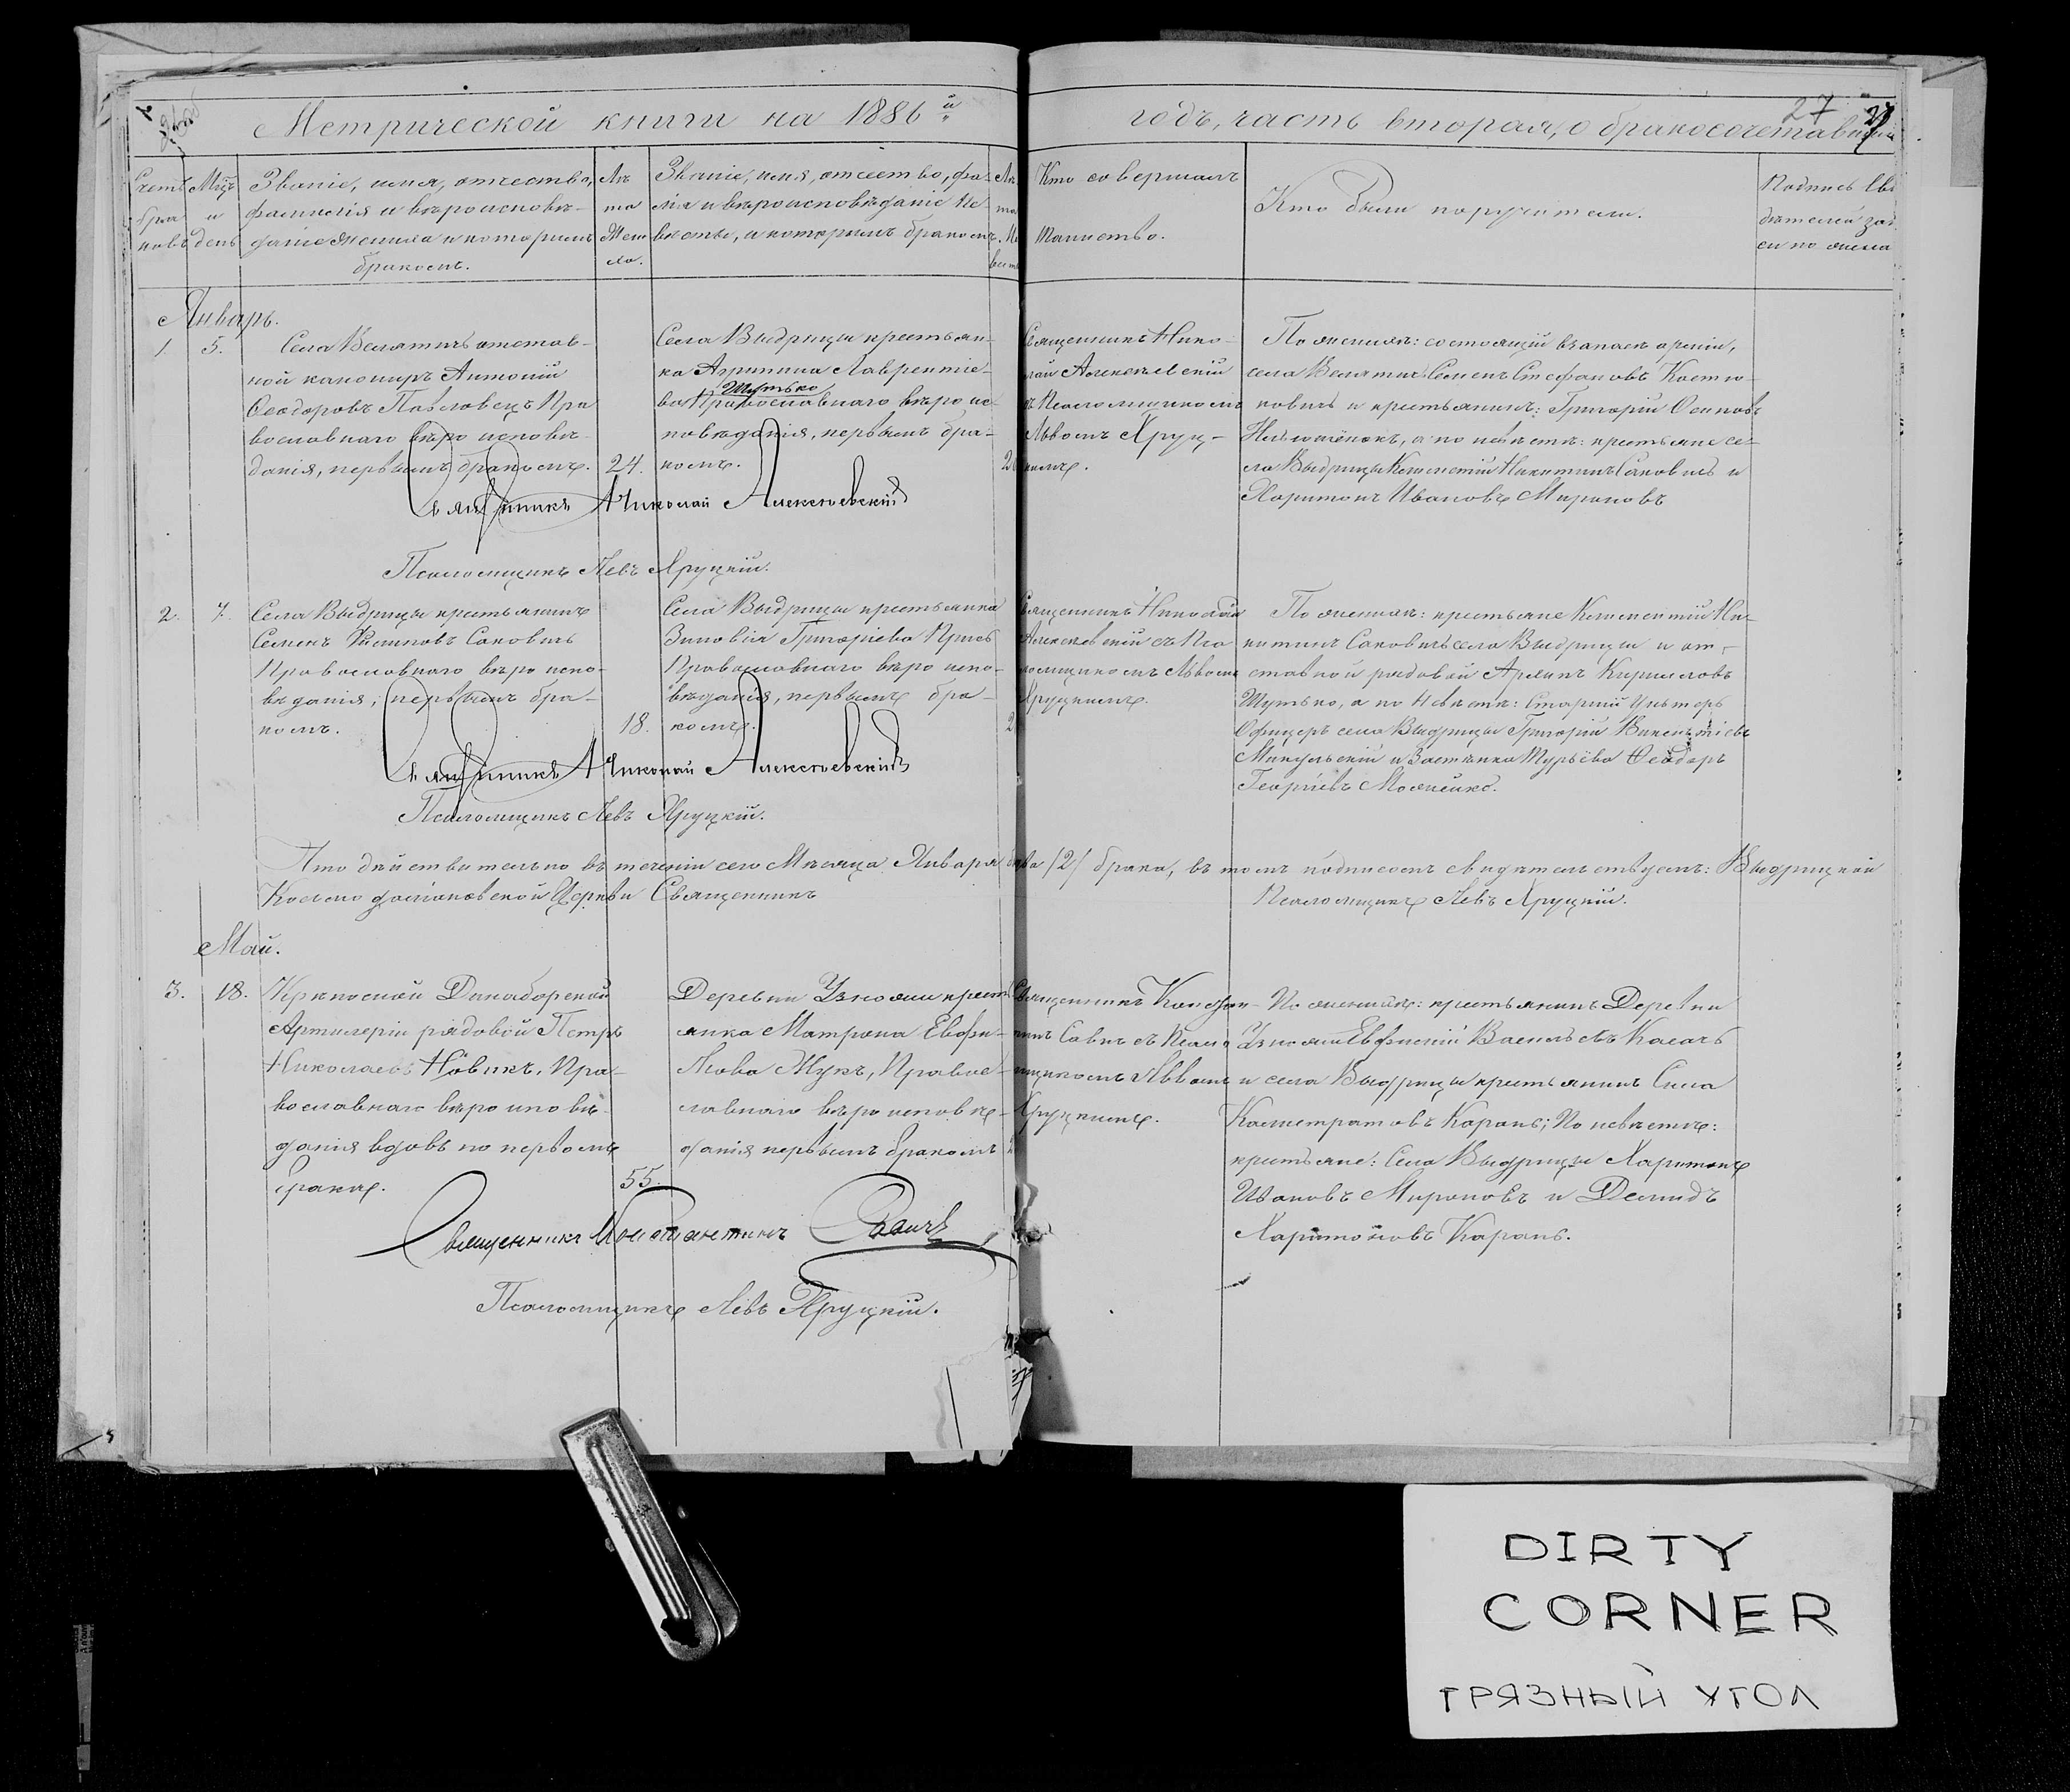 Метрической книги на 1886й
годъ, часть вторая, о бракосочетавш
27
Счетъ
бра
ковъ
Мѣц
и
день
Званіе, имя, отчество,
фамилія и вѣроисповѣ-
даніе жениха и которымъ
бракомъ.
Лѣ
та
Жени
ха.
Званіе, имя, отчество, фа-
мія и вѣроисповѣданіе не-
вѣсты, и которымъ бракомъ.
Кто совершалъ
таинство.
Кто были поручители.
Подпись сви
дѣтелей зап
си по жела
Январь.
1. 5.
Села Велятичъ отстав-
ной канониръ Антоній
Ѳеодоровъ Павловецъ Пра
вославнаго вѣро исповѣ-
данія, первымъ бракомъ. 24.
Села Выдрицы крестьян-
ка Агрипина Лаврентіе-
Шутько
ва Православнаго вѣро ис-
повѣданія, первымъ бра-
комъ.
Священникъ Нико-
лай Алексѣевскій
съ Псаломщикомъ
Львомъ Хруц-
кимъ.
По женихѣ: состоящій въ запасѣ арміи,
села Велятичъ Семенъ Стефановъ Костю-
ковичъ и крестьянинъ: Григорій Осиповъ
а по невѣстѣ: крестьяне се-
ла Выдрицы Климентій Никитинъ Саковичъ и
Харитонъ Ивановъ Мироновъ
Священникъ Николай Алексѣевскій
Псаломщикъ Левъ Хруцкій.
2. 7.
Села Выдрицы крестьянинъ
Семенъ Филиповъ Саковичъ
Православнаго вѣро испо-
вѣданія, первымъ бра-
комъ. 18.
Села Выдрицы крестьянка
Зиновія Григоріева Ярисъ
Православнаго вѣро испо-
вѣданія, первымъ бра-
комъ.
Священникъ Николай
Алексѣевскій съ Пса
ломщикомъ Львомъ
Хруцкимъ.
По женихѣ: крестьяне Климентій Ни-
китинъ Саковичъ села Выдрицы и от-
ставной рядовой Кириловъ
Шутько, а по невѣстѣ: Старшій Унтеръ
Офицеръ села Выдрицы Григорій Викентіевъ
Микульскій и Застѣнка Ѳеодоръ
Георгіевъ Можейко.
Священникъ Николай Алексѣевскій
Псаломщикъ Левъ Хруцкій.
Что дѣйствительно въ теченіи сего Мѣсяца Января два /2/ брака, въ томъ подписомъ свидѣтельствуемъ: Выдрицкой
Космо даміановской Церкви Священникъ
Псаломщикъ Левъ Хруцкій.
Май.
3. 18.
Крѣпосной Динаборгской
Артилеріи рядовой Петръ
Николаевъ Новикъ, Пра-
вославнаго вѣро исповѣ-
данія вдовъ по первомъ
бракѣ. 55.
Деревни Узножи крест
янка Матрона Евфи-
мова Жукъ, Правос-
лавнаго вѣро исповѣ-
данія первымъ бракомъ
Священникъ Констан-
тинъ Савичъ съ Псало
мщикомъ Львомъ
Хруцкимъ.
По женихѣ: крестьянинъ Деревни
Узножи Евфимій Васильевъ Касачъ
и села Выдрицы крестьянинъ Сила
Калистратовъ Карань; По невѣстѣ:
крестьяне: Села Выдрицы Харитонъ
Ивановъ Мироновъ и Демидъ
Харитоновъ Карань.
Священникъ Константинъ Савичъ
Псаломщикъ Левъ Хруцкій.
DIRTY
CORNER
ГРЯЗНЫЙ УГОЛ